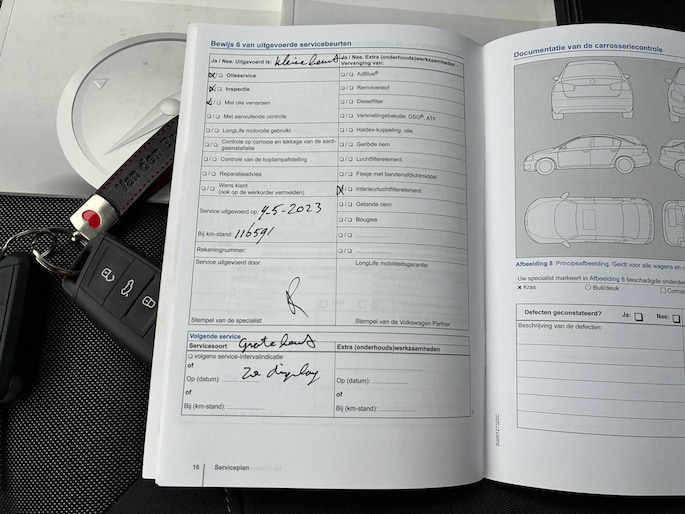 Bewijs 6 van uitgevoerde servicebeurten
Ja / Nee. Uitgevoerd is: kleine beurt
☒/❑ Olieservice
☒/❑ Inspectie
☒/❑ Met olie verversen
❑/❑ Met aanvullende controle
❑/❑ LongLife motorolie gebruikt
❑/❑ Controle op corrosie en lekkage van de aard-
gasinstallatie
❑/❑ Controle van de koplampafstelling
❑/❑ Reparatieadvies
❑/❑ Wens klant
(ook op de werkorder vermelden)
Service uitgevoerd op: 4-5-2023
Bij km-stand: 116591
Rekeningnummer:
Service uitgevoerd door:
Stempel van de specialist
Ja / Nee. Extra (onderhouds)werkzaamheden -
Vervanging van:
❑/❑ AdBlue®
❑/❑ Remvloeistof
❑/❑ Dieselfilter
❑/❑ Versnellingsbakolie: DSG®, ATF
❑/❑ Haldex-koppeling: olie
❑/❑ Geribde riem
❑/❑ Luchtfilterelement
❑/❑ Flesje met bandenafdichtmiddel
☒/❑ Interieurluchtfilterelement
❑/❑ Getande riem
❑/❑ Bougies
❑/❑
❑/❑
LongLife mobiliteitsgarantie:
Stempel van de Volkswagen Partner
Volgende service
Servicesoort Grote beurt
❑ volgens service-intervalindicatie
of
Op (datum): zie display
of
Bij (km-stand):
Extra (onderhouds)werkzaamheden
Op (datum):
of
Bij (km-stand):
16 Serviceplan
Documentatie van de carrosseriecontrole
Afbeelding 8 Principeafbeelding. Geldt voor alle wagens en
Uw specialist markeert in Afbeelding 8 beschadigde onderdel
x Kras O Buil/deuk ☐ Corros
Defecten geconstateerd? Ja: ❑ Nee: ❑
Beschrijving van de defecten:
Van den